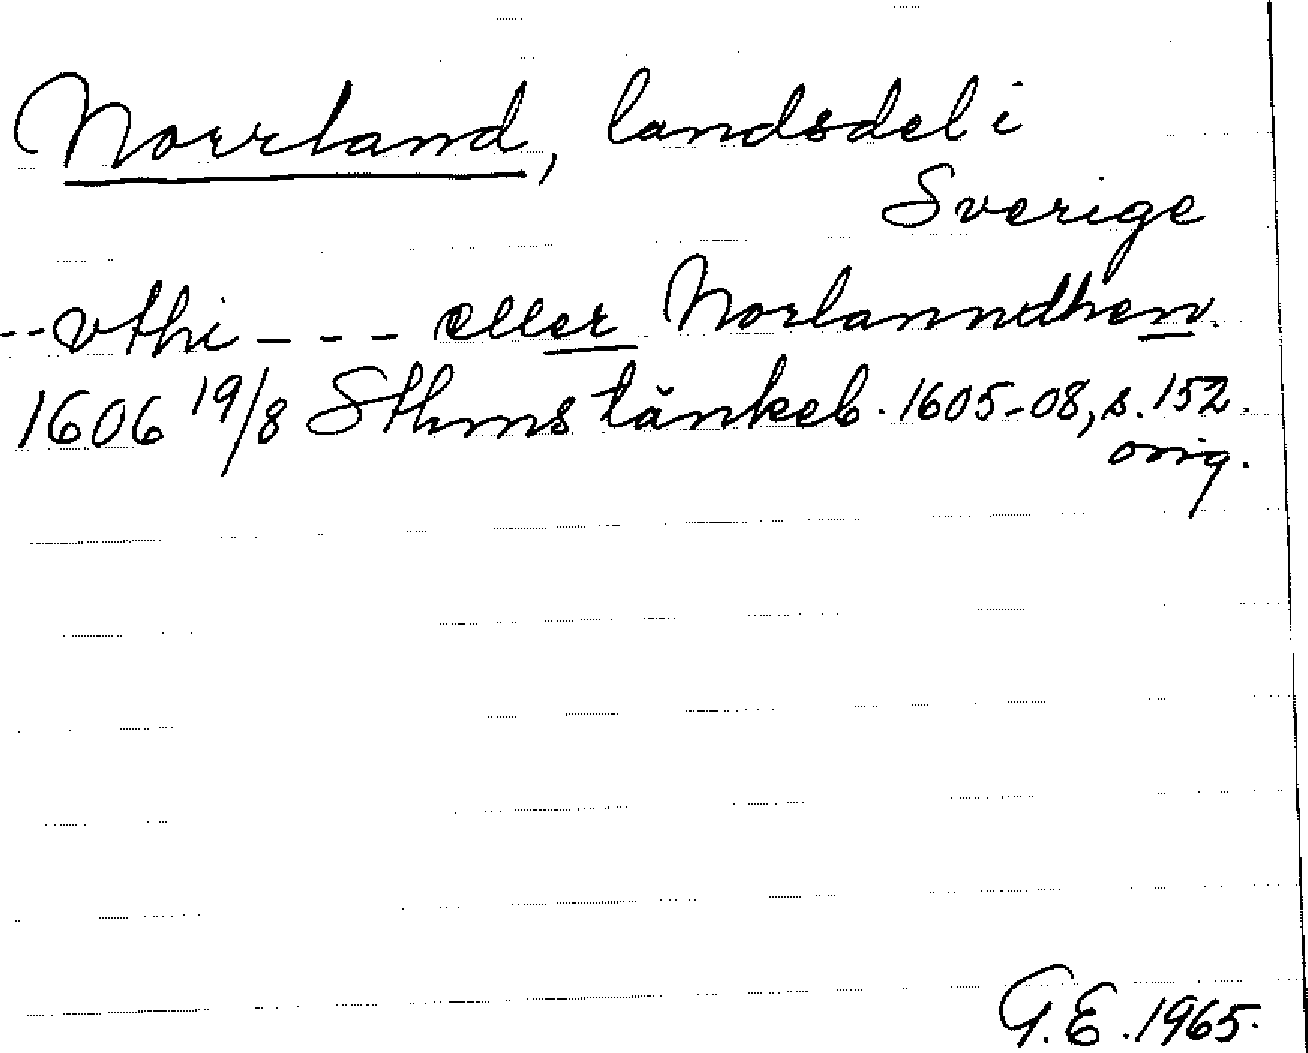 Norrland, landsdel i
Sverige
-- vthi - - - eller Norlanndhen
1606 19/8 Sthms tänkeb. 1605-08, s. 152.
orig.
G.E. 1965.